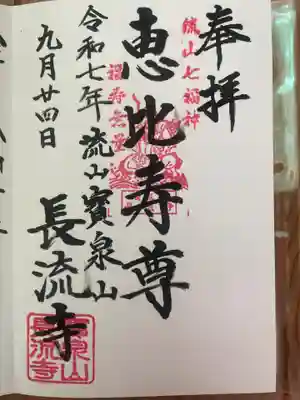 奉拝
流山七福神
恵比寿尊
福寿無量
令和七年 流山 寳泉山
長流寺
九月廿四日
寳泉山
長流寺